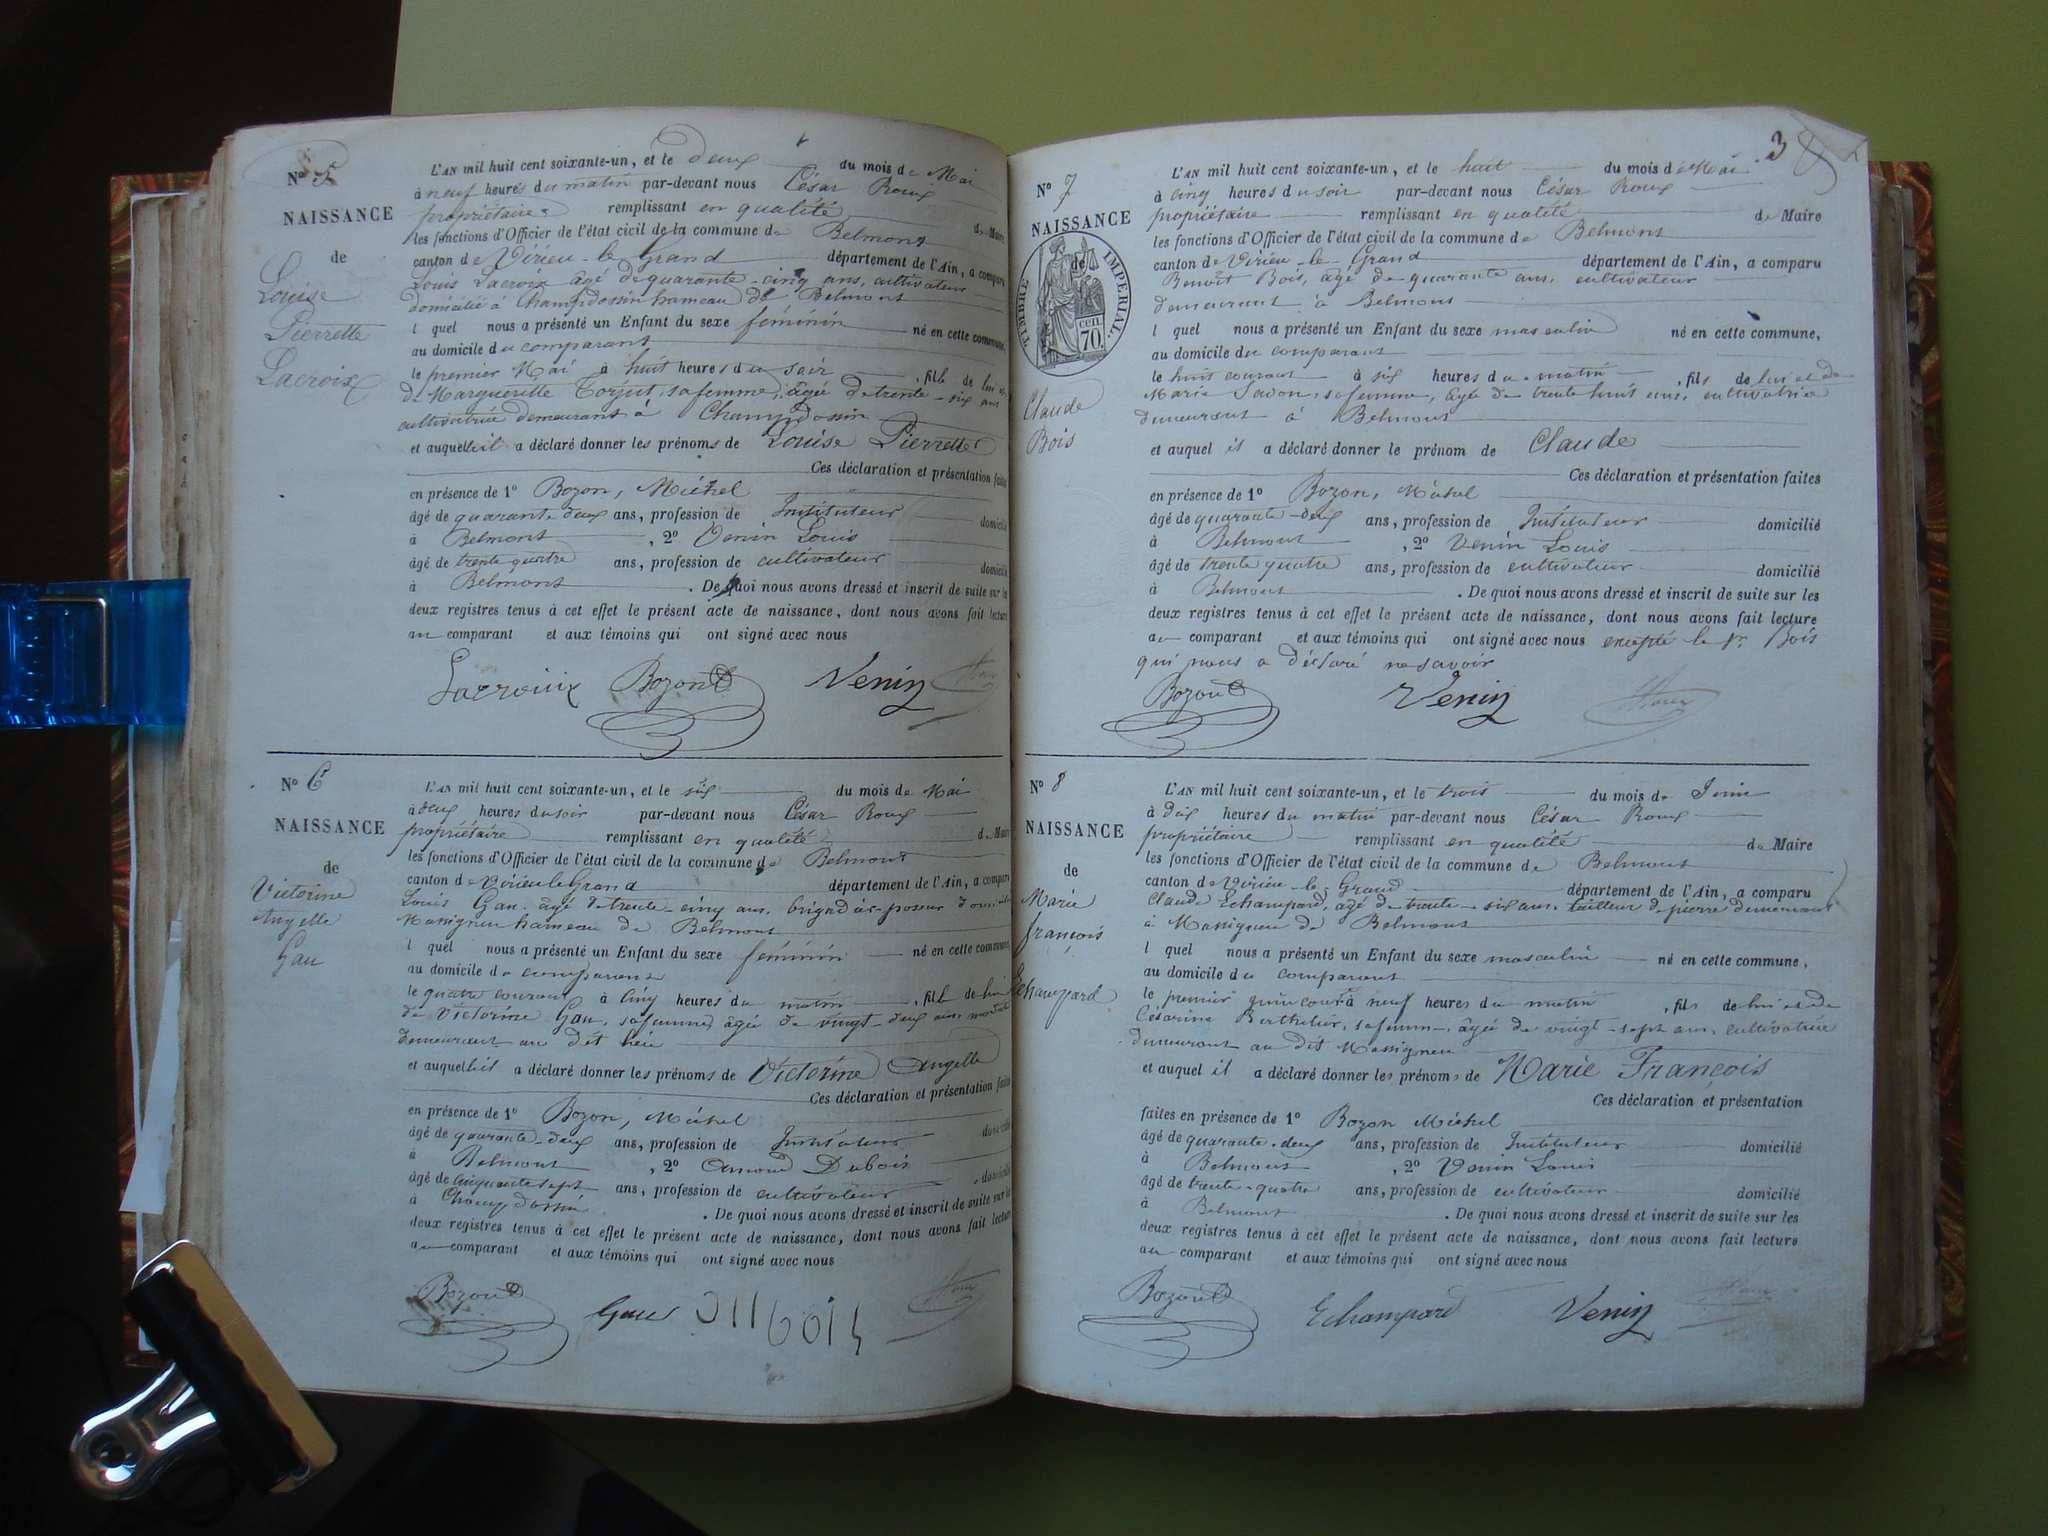 N° 5
NAISSANCE
de
Louise
Pierrette
Lacroix
L'AN mil huit cent soixante-un, et le deux du mois de Mai
à neuf heures du matin par-devant nous César Roux
propriétaire remplissant en qualité de Maire
les fonctions d'Officier de l'état civil de la commune de Belmont
canton de Virieu-le-Grand département de l'Ain, a comparu
Louis Lacroix âgé de quarante-cinq ans, cultivateur
domicilié à Champdossin hameau de Belmont
l quel nous a présenté un Enfant du sexe féminin né en cette commune,
au domicile du comparant
le premier Mai à huit heures du soir, fille de lui et
de Marguerite sa femme, âgé de trente-six ans
cultivatrice demeurant à Champdossin
et auquel il a déclaré donner les prénoms de Louise Pierrette
Ces déclaration et présentation faites
en présence de 1° Bozon, Michel
âgé de quarante deux ans, profession de Instituteur domicilié
à Belmont, 2° Venin Louis
âgé de trente quatre ans, profession de cultivateur domicilié
à Belmont. De quoi nous avons dressé et inscrit de suite sur les
deux registres tenus à cet effet le présent acte de naissance, dont nous avons fait lecture
au comparant et aux témoins qui ont signé avec nous
Lacrouix Bozon Venin Roux
N° 6
NAISSANCE
de
Victorine
Angelle
Gau
L'AN mil huit cent soixante-un, et le six du mois de Mai
à deux heures du soir par-devant nous César Roux
propriétaire remplissant en qualité de Maire
les fonctions d'Officier de l'état civil de la commune de Belmont
canton de Virieu le Grand département de l'Ain, a comparu
Louis Gau, âgé de trente-cinq ans, poseur
Massignieu hameau de Belmont
l quel nous a présenté un Enfant du sexe féminin né en cette commune,
au domicile du comparant
le quatre courant à cinq heures du matin, fille de lui
de Victorine Gau, sa femme, âgée de vingt-deux ans
demeurant au dit lieu
et auquel il a déclaré donner les prénoms de Victorine Angelle
Ces déclaration et présentation faites
en présence de 1° Bozon, Michel
âgé de quarante-deux ans, profession de Instituteur domicilié
à Belmont, 2° Dubois
âgé de cinquante sept ans, profession de cultivateur, domicilié
à Champdossin. De quoi nous avons dressé et inscrit de suite sur les
deux registres tenus à cet effet le présent acte de naissance, dont nous avons fait lecture
au comparant et aux témoins qui ont signé avec nous
Bozon Gau Roux
3
N° 7
NAISSANCE
de
TIMBRE IMPERIAL
70 cen.
Claude
Bois
L'AN mil huit cent soixante-un, et le huit du mois de Mai
à cinq heures du soir par-devant nous César Roux
propriétaire remplissant en qualité de Maire
les fonctions d'Officier de l'état civil de la commune de Belmont
canton de Virieu-le-Grand département de l'Ain, a comparu
Benoît Bois, âgé de quarante ans, cultivateur
demeurant à Belmont
l quel nous a présenté un Enfant du sexe masculin né en cette commune,
au domicile du comparant
le huit courant à six heures du matin, fils de lui et de
Marie Savon, sa femme, âgé de trente huit ans, cultivatrice
demeurant à Belmont
et auquel il a déclaré donner le prénom de Claude
Ces déclaration et présentation faites
en présence de 1° Bozon, Michel
âgé de quarante-deux ans, profession de Instituteur domicilié
à Belmont, 2° Venin Louis
âgé de trente quatre ans, profession de cultivateur domicilié
à Belmont. De quoi nous avons dressé et inscrit de suite sur les
deux registres tenus à cet effet le présent acte de naissance, dont nous avons fait lecture
au comparant et aux témoins qui ont signé avec nous excepté le Sr Bois
qui nous a déclaré ne savoir
Bozon Venin Roux
N° 8
NAISSANCE
de
Marie
françois
Echampard
L'AN mil huit cent soixante-un, et le trois du mois de Juin
à dix heures du matin par-devant nous César Roux
propriétaire remplissant en qualité de Maire
les fonctions d'Officier de l'état civil de la commune de Belmont
canton de Virieu-le-Grand département de l'Ain, a comparu
Claude Echampard, âgé de trente-six ans, tailleur de pierre demeurant
à Massignieu de Belmont
l quel nous a présenté un Enfant du sexe masculin né en cette commune,
au domicile du comparant
le premier juin courant à neuf heures du matin, fils de lui et de
Césarine Berthelier, sa femme, âgée de vingt-sept ans, cultivatrice
demeurant au dit Massignieu
et auquel il a déclaré donner les prénoms de Marie François
Ces déclaration et présentation
faites en présence de 1° Bozon Michel
âgé de quarante-deux ans, profession de Instituteur domicilié
à Belmont, 2° Venin Louis
âgé de trente-quatre ans, profession de cultivateur domicilié
à Belmont. De quoi nous avons dressé et inscrit de suite sur les
deux registres tenus à cet effet le présent acte de naissance, dont nous avons fait lecture
au comparant et aux témoins qui ont signé avec nous
Bozon Echampard Venin Roux